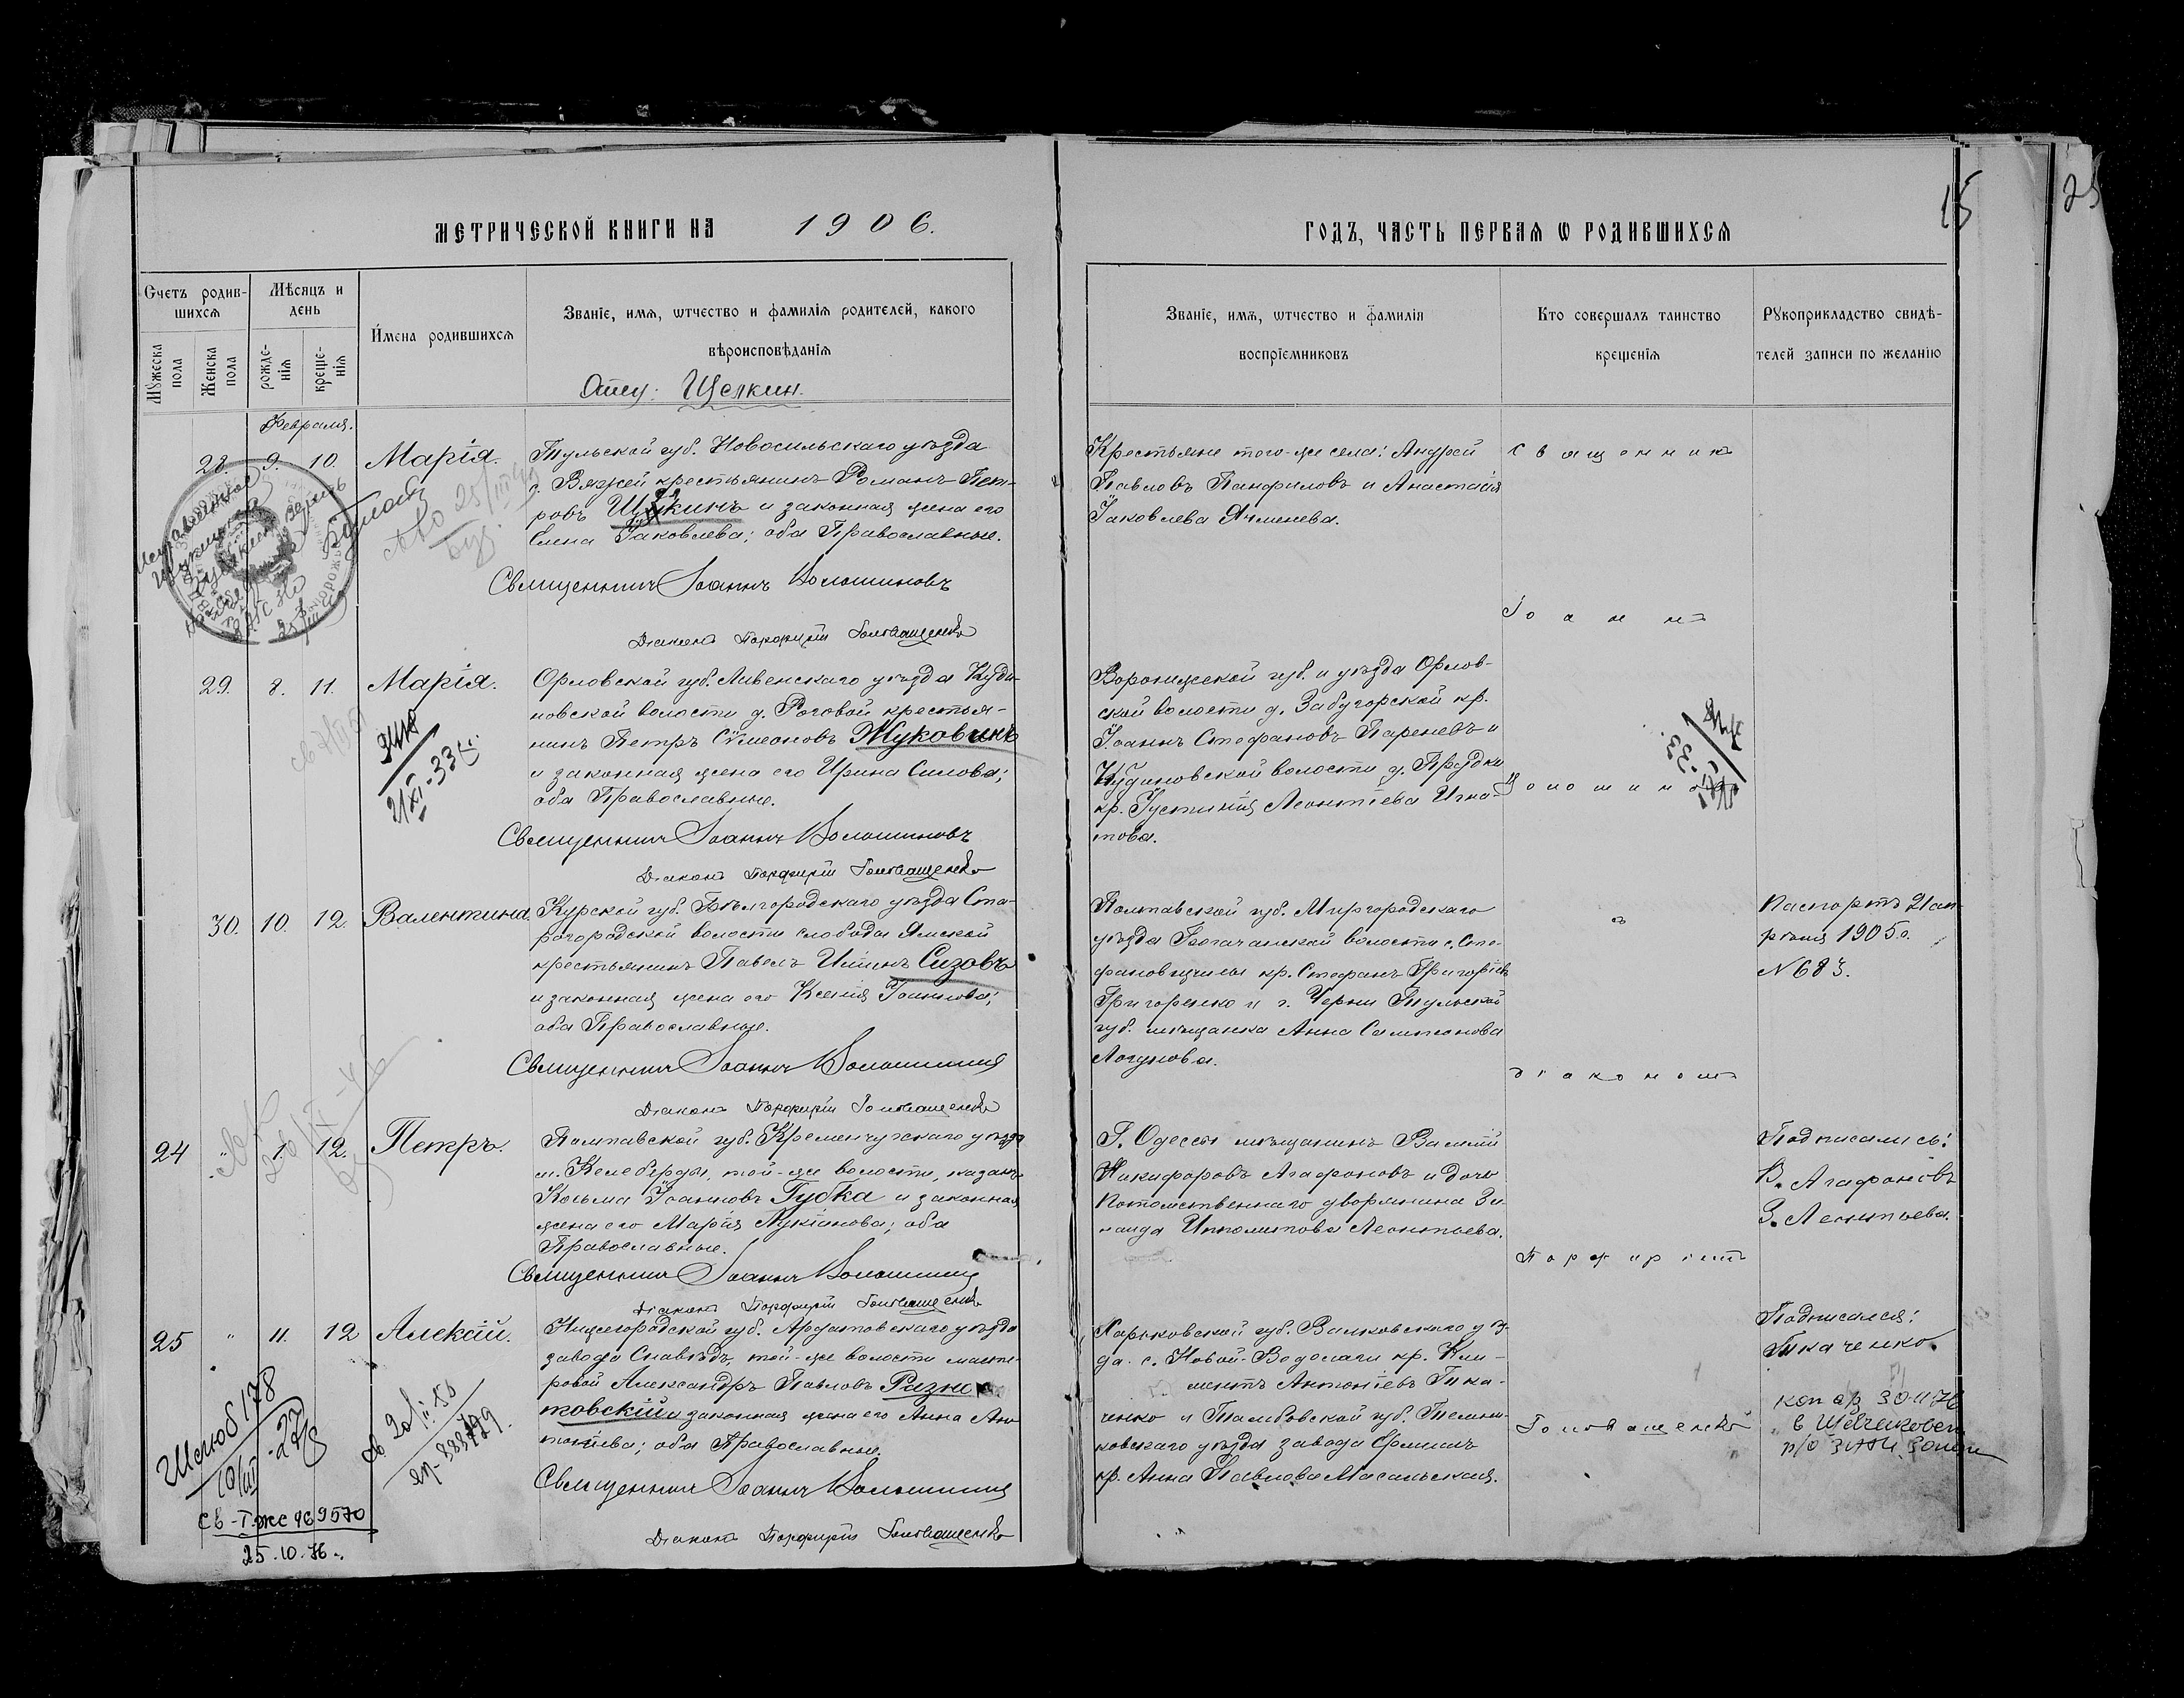 МЕТРИЧЕСКОЙ КНИГИ НА 1906.
ГОДЪ, ЧАСТЬ ПЕРВАЯ Ѡ РОДИВШИХСЯ
15
25
Счетъ родив-
шихся
Мѣсяцъ и
день
Мужеска
пола
Женска
пола
рожде-
нія
креще-
нія
Имена родившихся
Званіе, имя, ѡтчество и фамилія родителей, какого
вѣроисповѣданія
Отец: Щелкин.
Званіе, имя, ѡтчество и фамилія
воспріемниковъ
Кто совершалъ таинство
крещенія
Рукоприкладство свидѣ-
телей записи по желанію
Февраля.
28. 9. 10. Марія.
Тульской губ. Новосильскаго уѣзда
д. Вяжей крестьянинъ Романъ Пет-
ровъ и законная жена его
Елена Іаковлева; оба Православные.
Священникъ Іоаннъ Волошиновъ
Діаконъ Порфирій Головащенко
Крестьяне того-же села: Андрей
Павловъ Панфиловъ и Анастасія
Іаковлева Ячменева.
Священникъ
Іоаннъ
25/III
29. 8. 11. Марія.
21/XI-33
Орловской губ. Ливенскаго уѣзда Куди-
новской волости д. Роговой крестья-
нинъ Петръ Сѵмеоновъ Жуковинъ
и законная жена его Ирина Силова;
оба Православные.
Священникъ Іоаннъ Волошиновъ
Діаконъ Порфирій Головащенко
Воронежской губ. и уѣзда Орлов-
ской волости д. Забугорской кр.
Іоаннъ Стефановъ Пареневъ и
Кудиновской волости д. Прудки
кр. Іустинія Леонтіева Игна-
това.
Волошиновъ
30. 10. 12. Валентина.
Курской губ. Бѣлгородскаго уѣзда Ста-
рогородской волости слободы Ямской
крестьянинъ Павелъ Ильинъ Сизовъ
и законная жена его Ксенія Іоаннова;
оба Православные.
Священникъ Іоаннъ Волошинов
Діаконъ Порфирій Головащенко
Полтавской губ. Миргородскаго
уѣзда волости с. Сте-
фановщины кр. Стефанъ Григоріевъ
Григоренко и г. Черни Тульской
губ. мѣщанка Анна Сампсонова
Логунова.
съ
діакономъ
Паспортъ 21 ап-
рѣля 1905 г.
N 683.
24 " 1. 12. Петръ.
Полтавской губ. Кременчугскаго уѣзда
м. Келеберды, той-же волости, казакъ
Косьма Іоанновъ Губка и законная
жена его Марія Лукіанова; оба
Православные.
Священникъ Іоаннъ Волошинов
Діаконъ Порфирій Головащенко
Г. Одессы мѣщанинъ Василій
Никифоровъ Агафоновъ и дочь
потомственнаго дворянина Зи-
наида Ипполитова Леонтьева.
Порфиріемъ
Подписались:
В. Агафоновъ
З. Леонтьева.
25 " 11. 12 Алексій.
Нижегородской губ. Ардатовскаго уѣзда
завода Снаведь, той-же волости масте-
ровой Александръ Павловъ
и законная жена его Анна Ана-
толіева; оба Православные.
Священникъ Іоаннъ Волошинов
Діаконъ Порфирій Головащенко
Харьковской губ. Валковскаго уѣз-
да с. Новой-Водолаги кр. Кли-
ментъ Антоніевъ Тка-
ченко и Тамбовской губ. Темни-
ковскаго уѣзда завода
кр. Анна Павлова Масальская.
Головащенко
Подписался:
Ткаченко.
10/III-27
св 20/II.58
св-I жс 469570
25.10.76